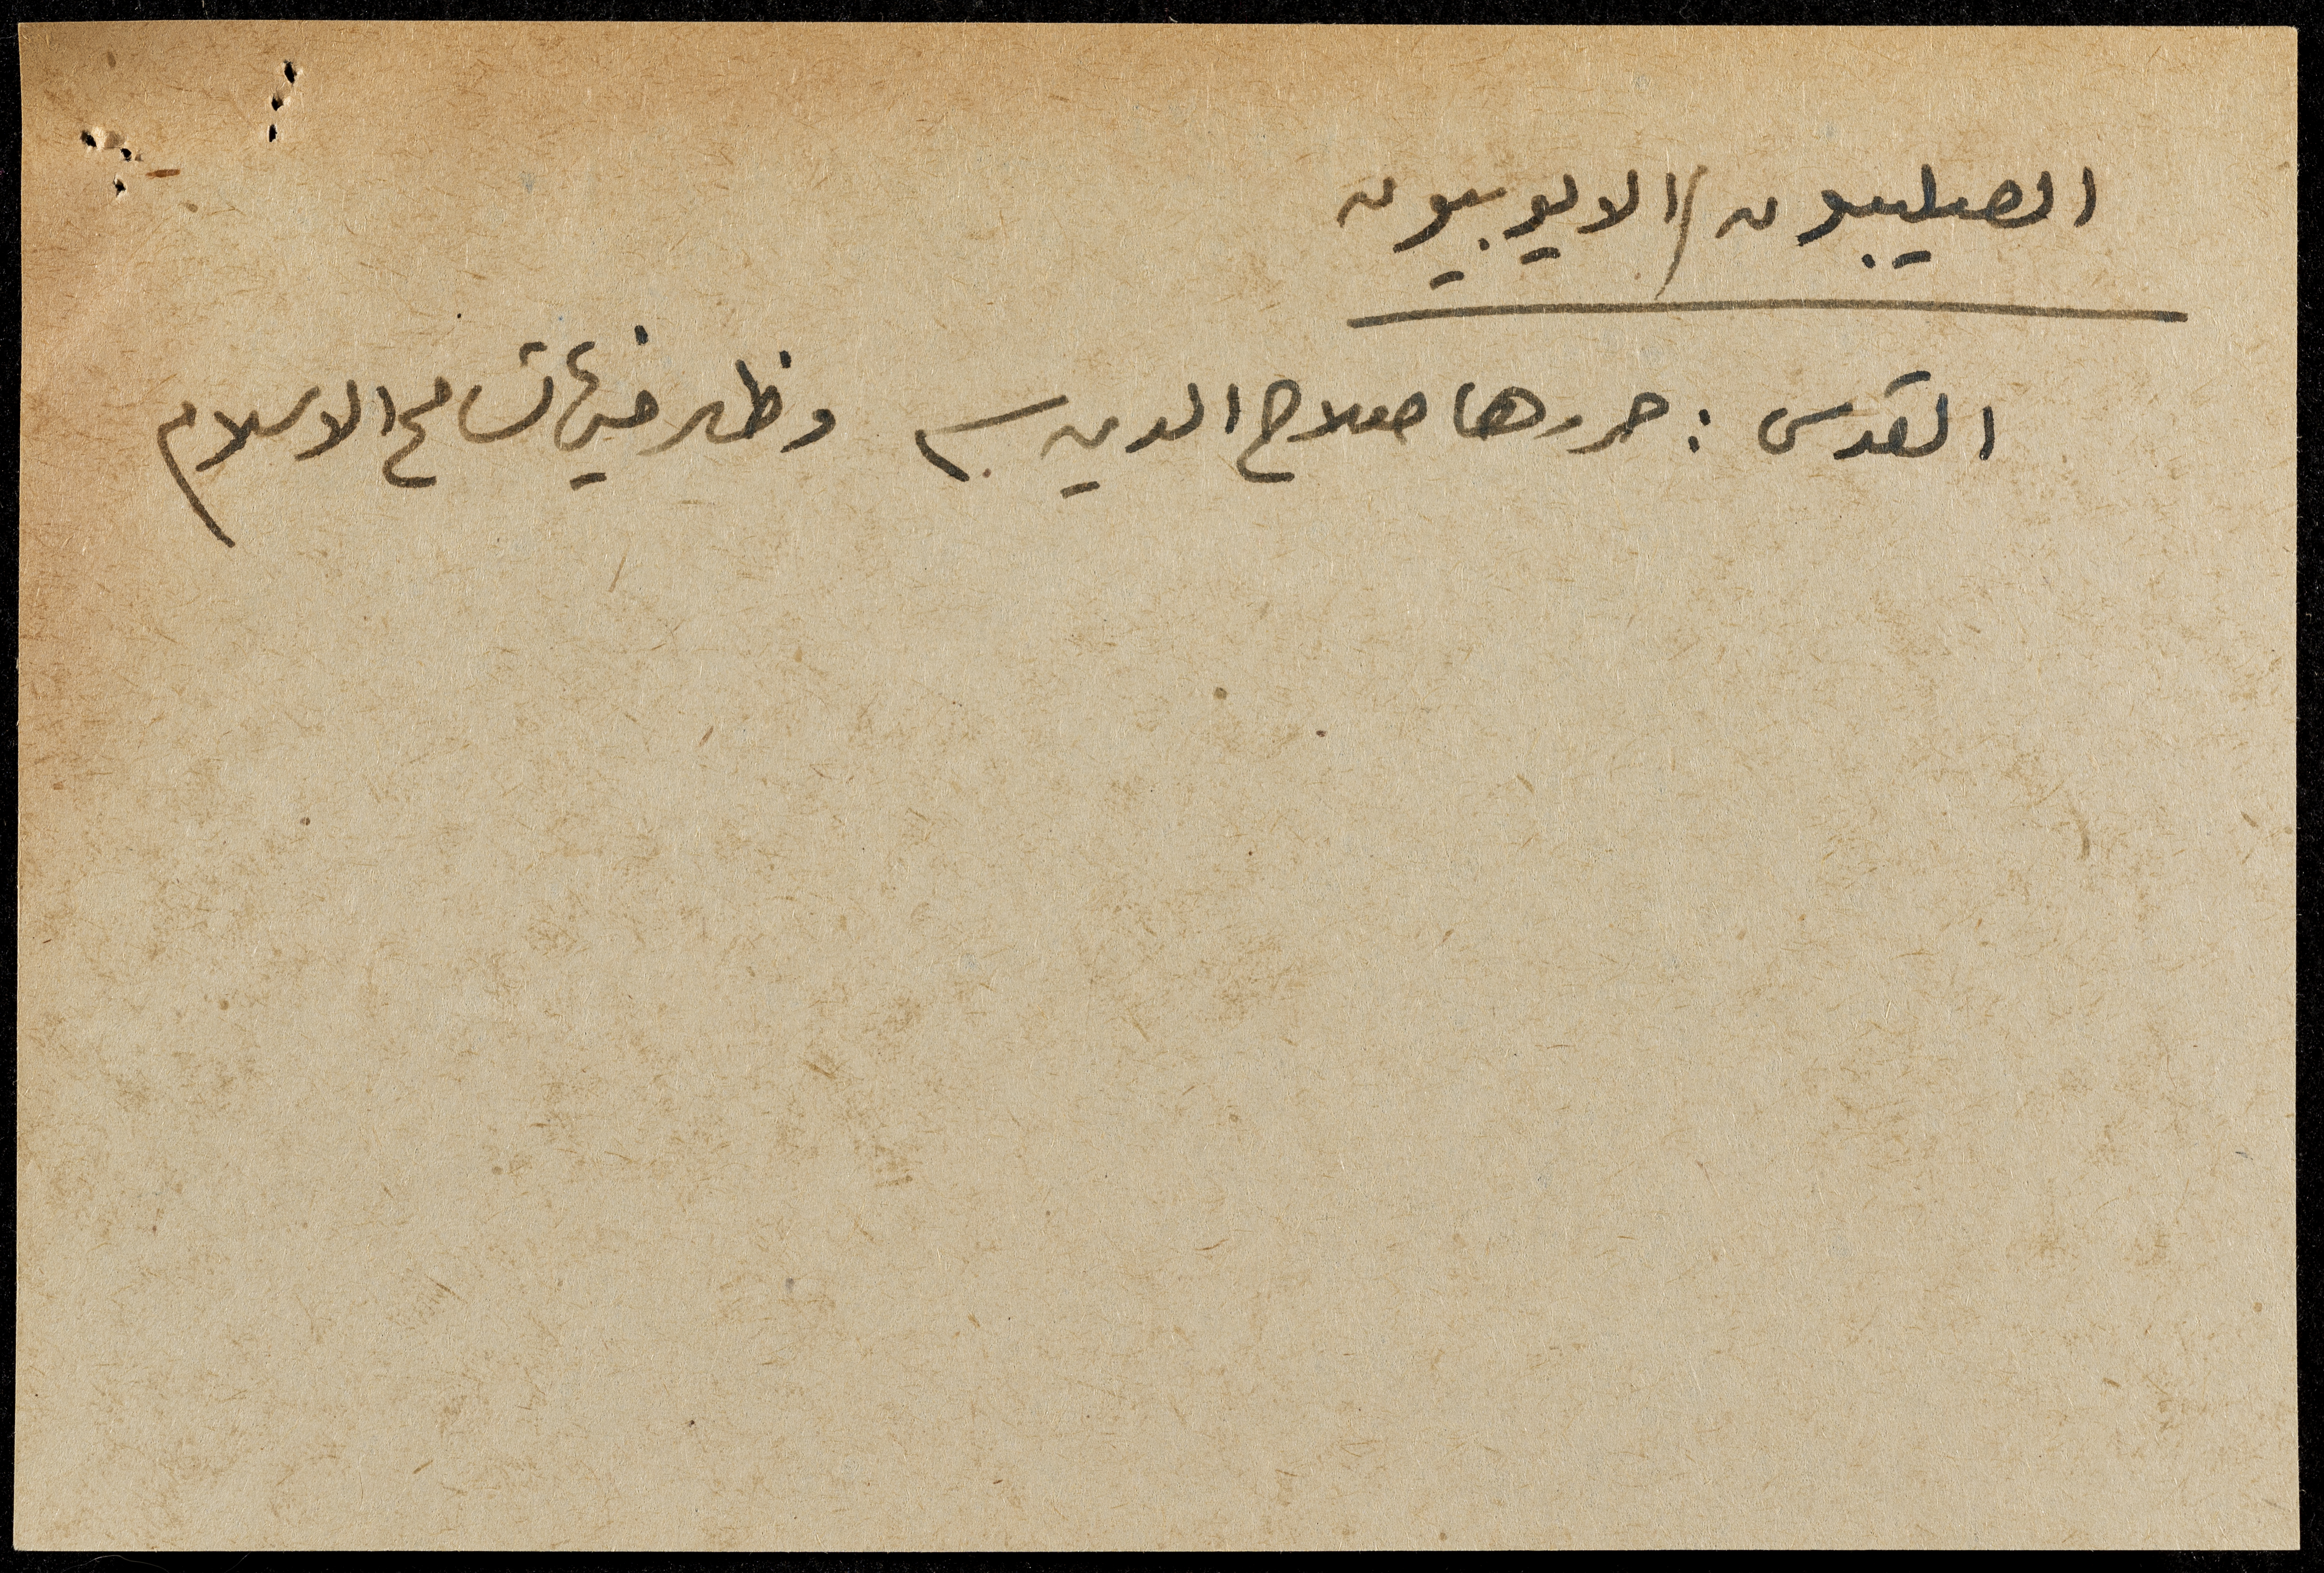 الصليبيون / الايوبيون
القدس : حررها صلاح الدين وظهر فيها تسامح الاسلام